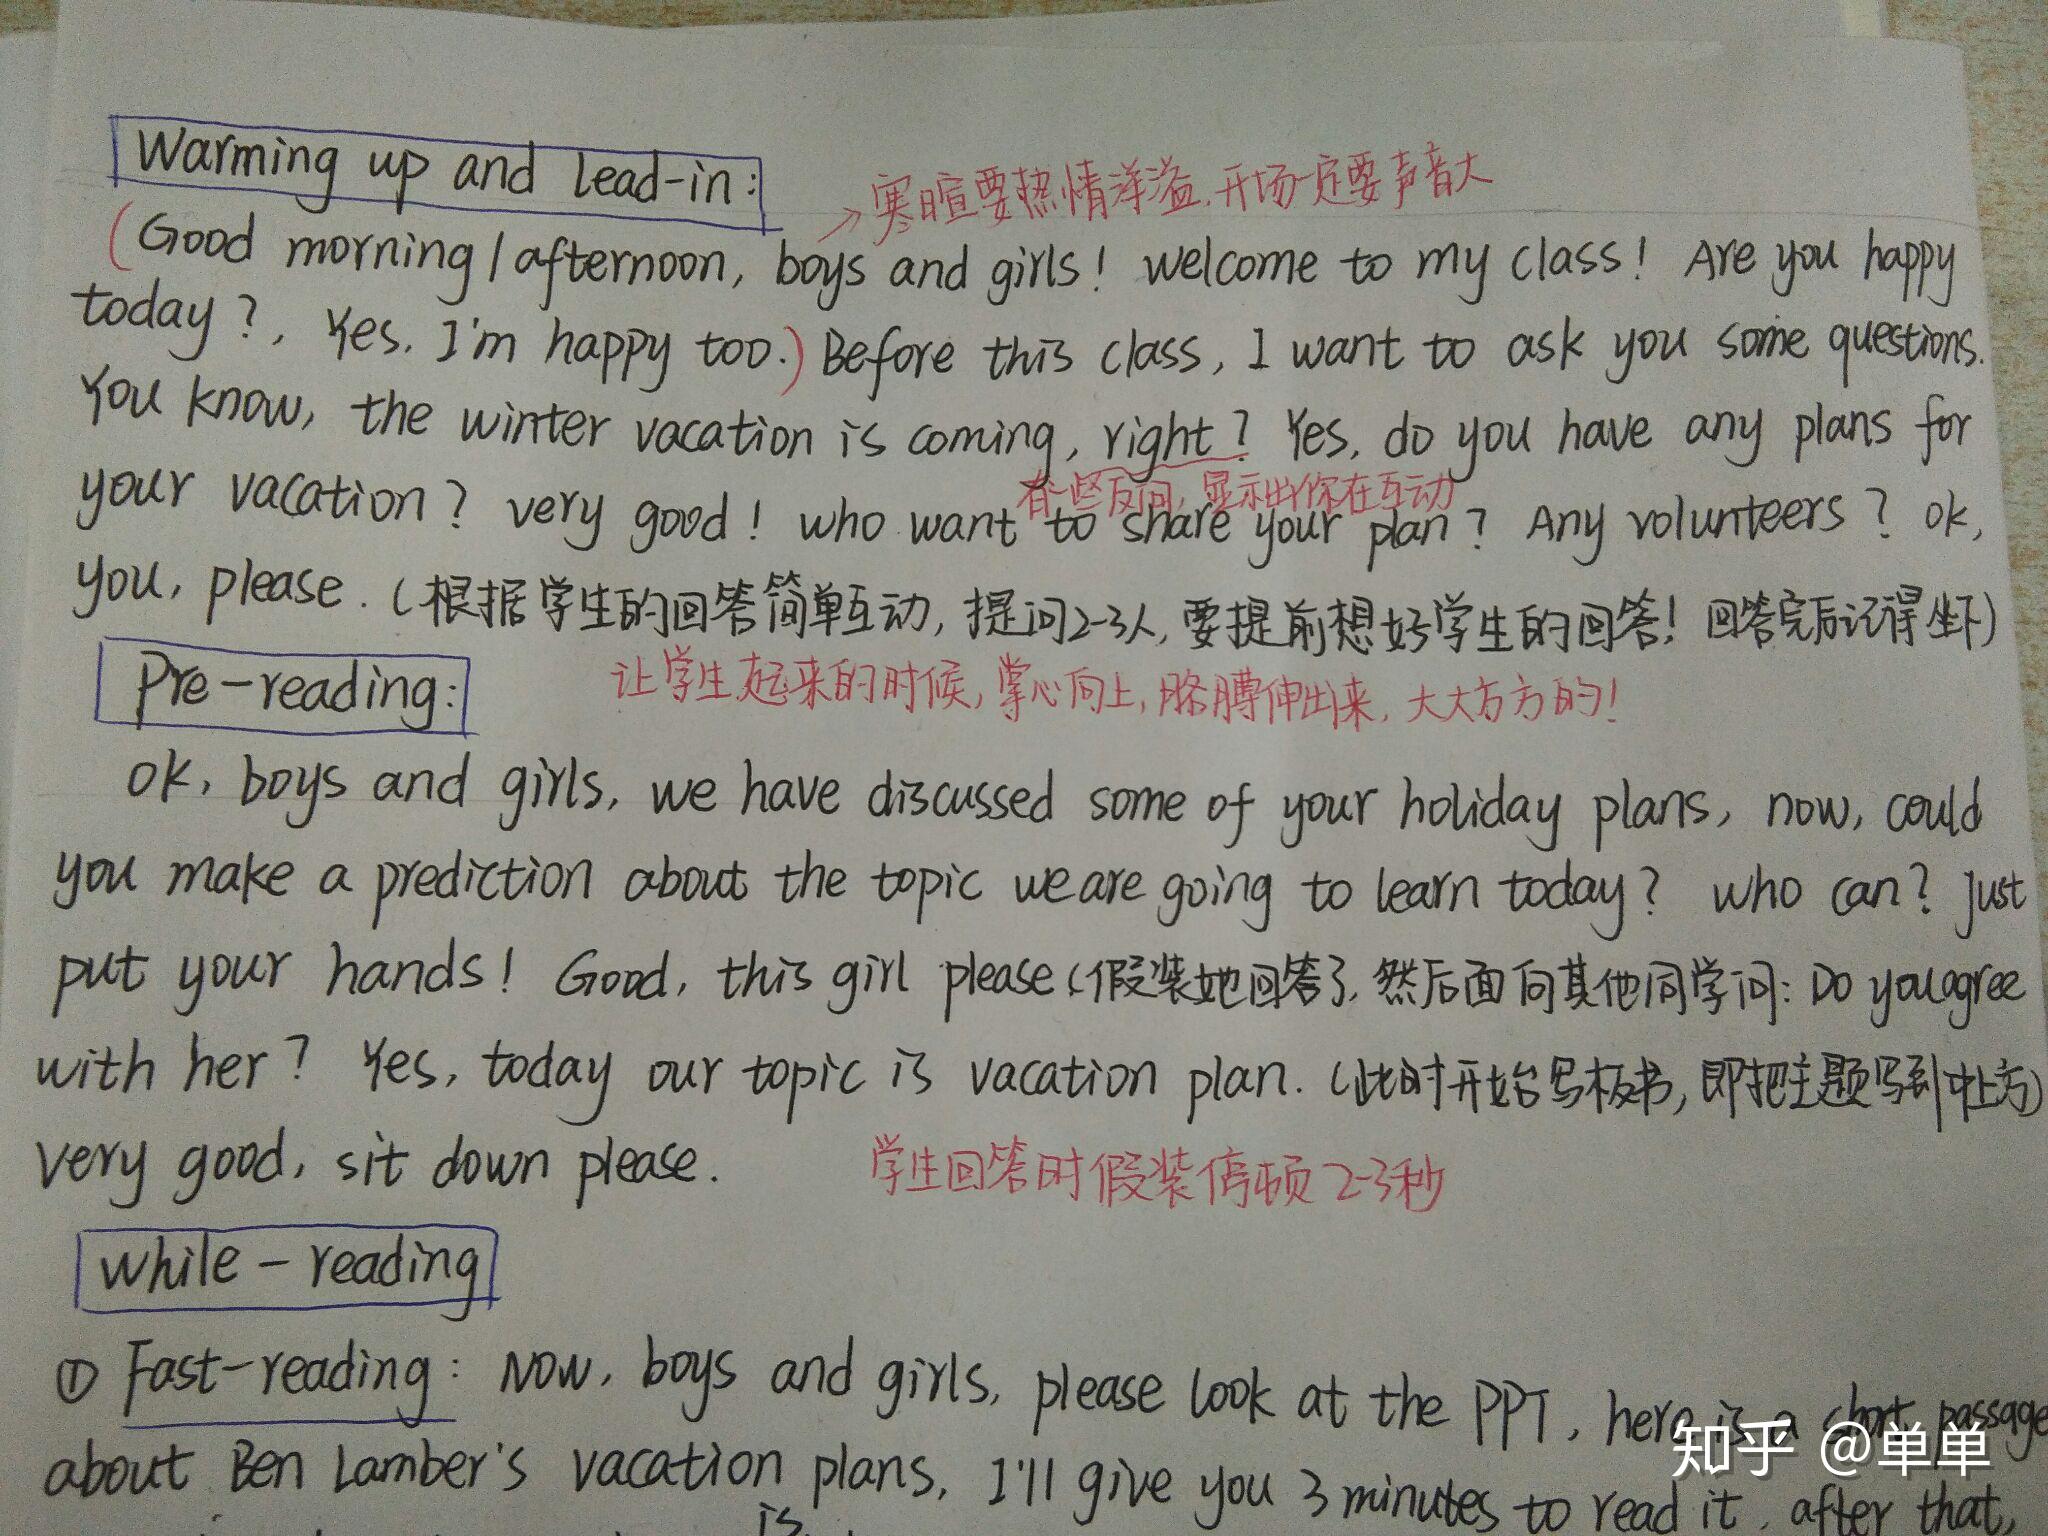 Warming up and lead-in:
→寒暄要热情洋溢,开场一定要声音大
(Good morning/afternoon, boys and girls! Welcome to my class! Are you happy
today?, Yes. I'm happy too.) Before this class, I want to ask you some questions.
You know, the winter vacation is coming, right? Yes, do you have any plans for
有些反问,显示出你在互动
your vacation? very good! who want to share your plan? Any volunteers? ok,
you, please. (根据学生的回答简单互动, 提问2-3人, 要提前想好学生的回答! 回答完后记得坐下)
Pre-reading:
让学生起来的时候, 掌心向上, 胳膊伸出来, 大大方方的!
ok, boys and girls, we have discussed some of your holiday plans, now, could
you make a prediction about the topic we are going to learn today? who can? Just
put your hands! Good, this girl please (假装她回答了, 然后面向其他同学问: Do you agree
with her? Yes, today our topic is vacation plan. (此时开始写板书, 即把主题写到中上方)
very good, sit down please.
学生回答时假装停顿2-3秒
while-reading
① Fast-reading: Now, boys and girls, please look at the PPT, here is a short passage
about Ben Lamber's vacation plans, I'll give you 3 minutes to read it, after that,
is
知乎 @单单